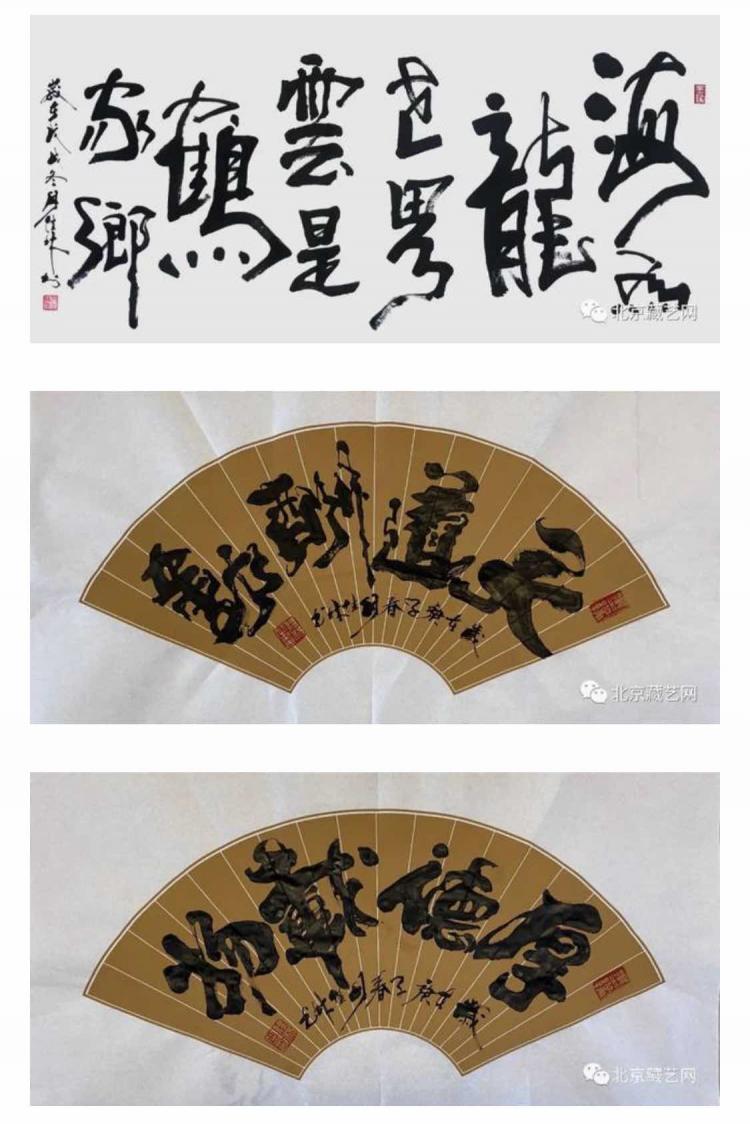 海为
龍
世界
雲是
鶴
家鄉
歲在戊戌冬月
北京藏艺网
天道酬勤
歲在庚子春月
北京藏艺网
厚德載物
歲在庚子春月
北京藏艺网